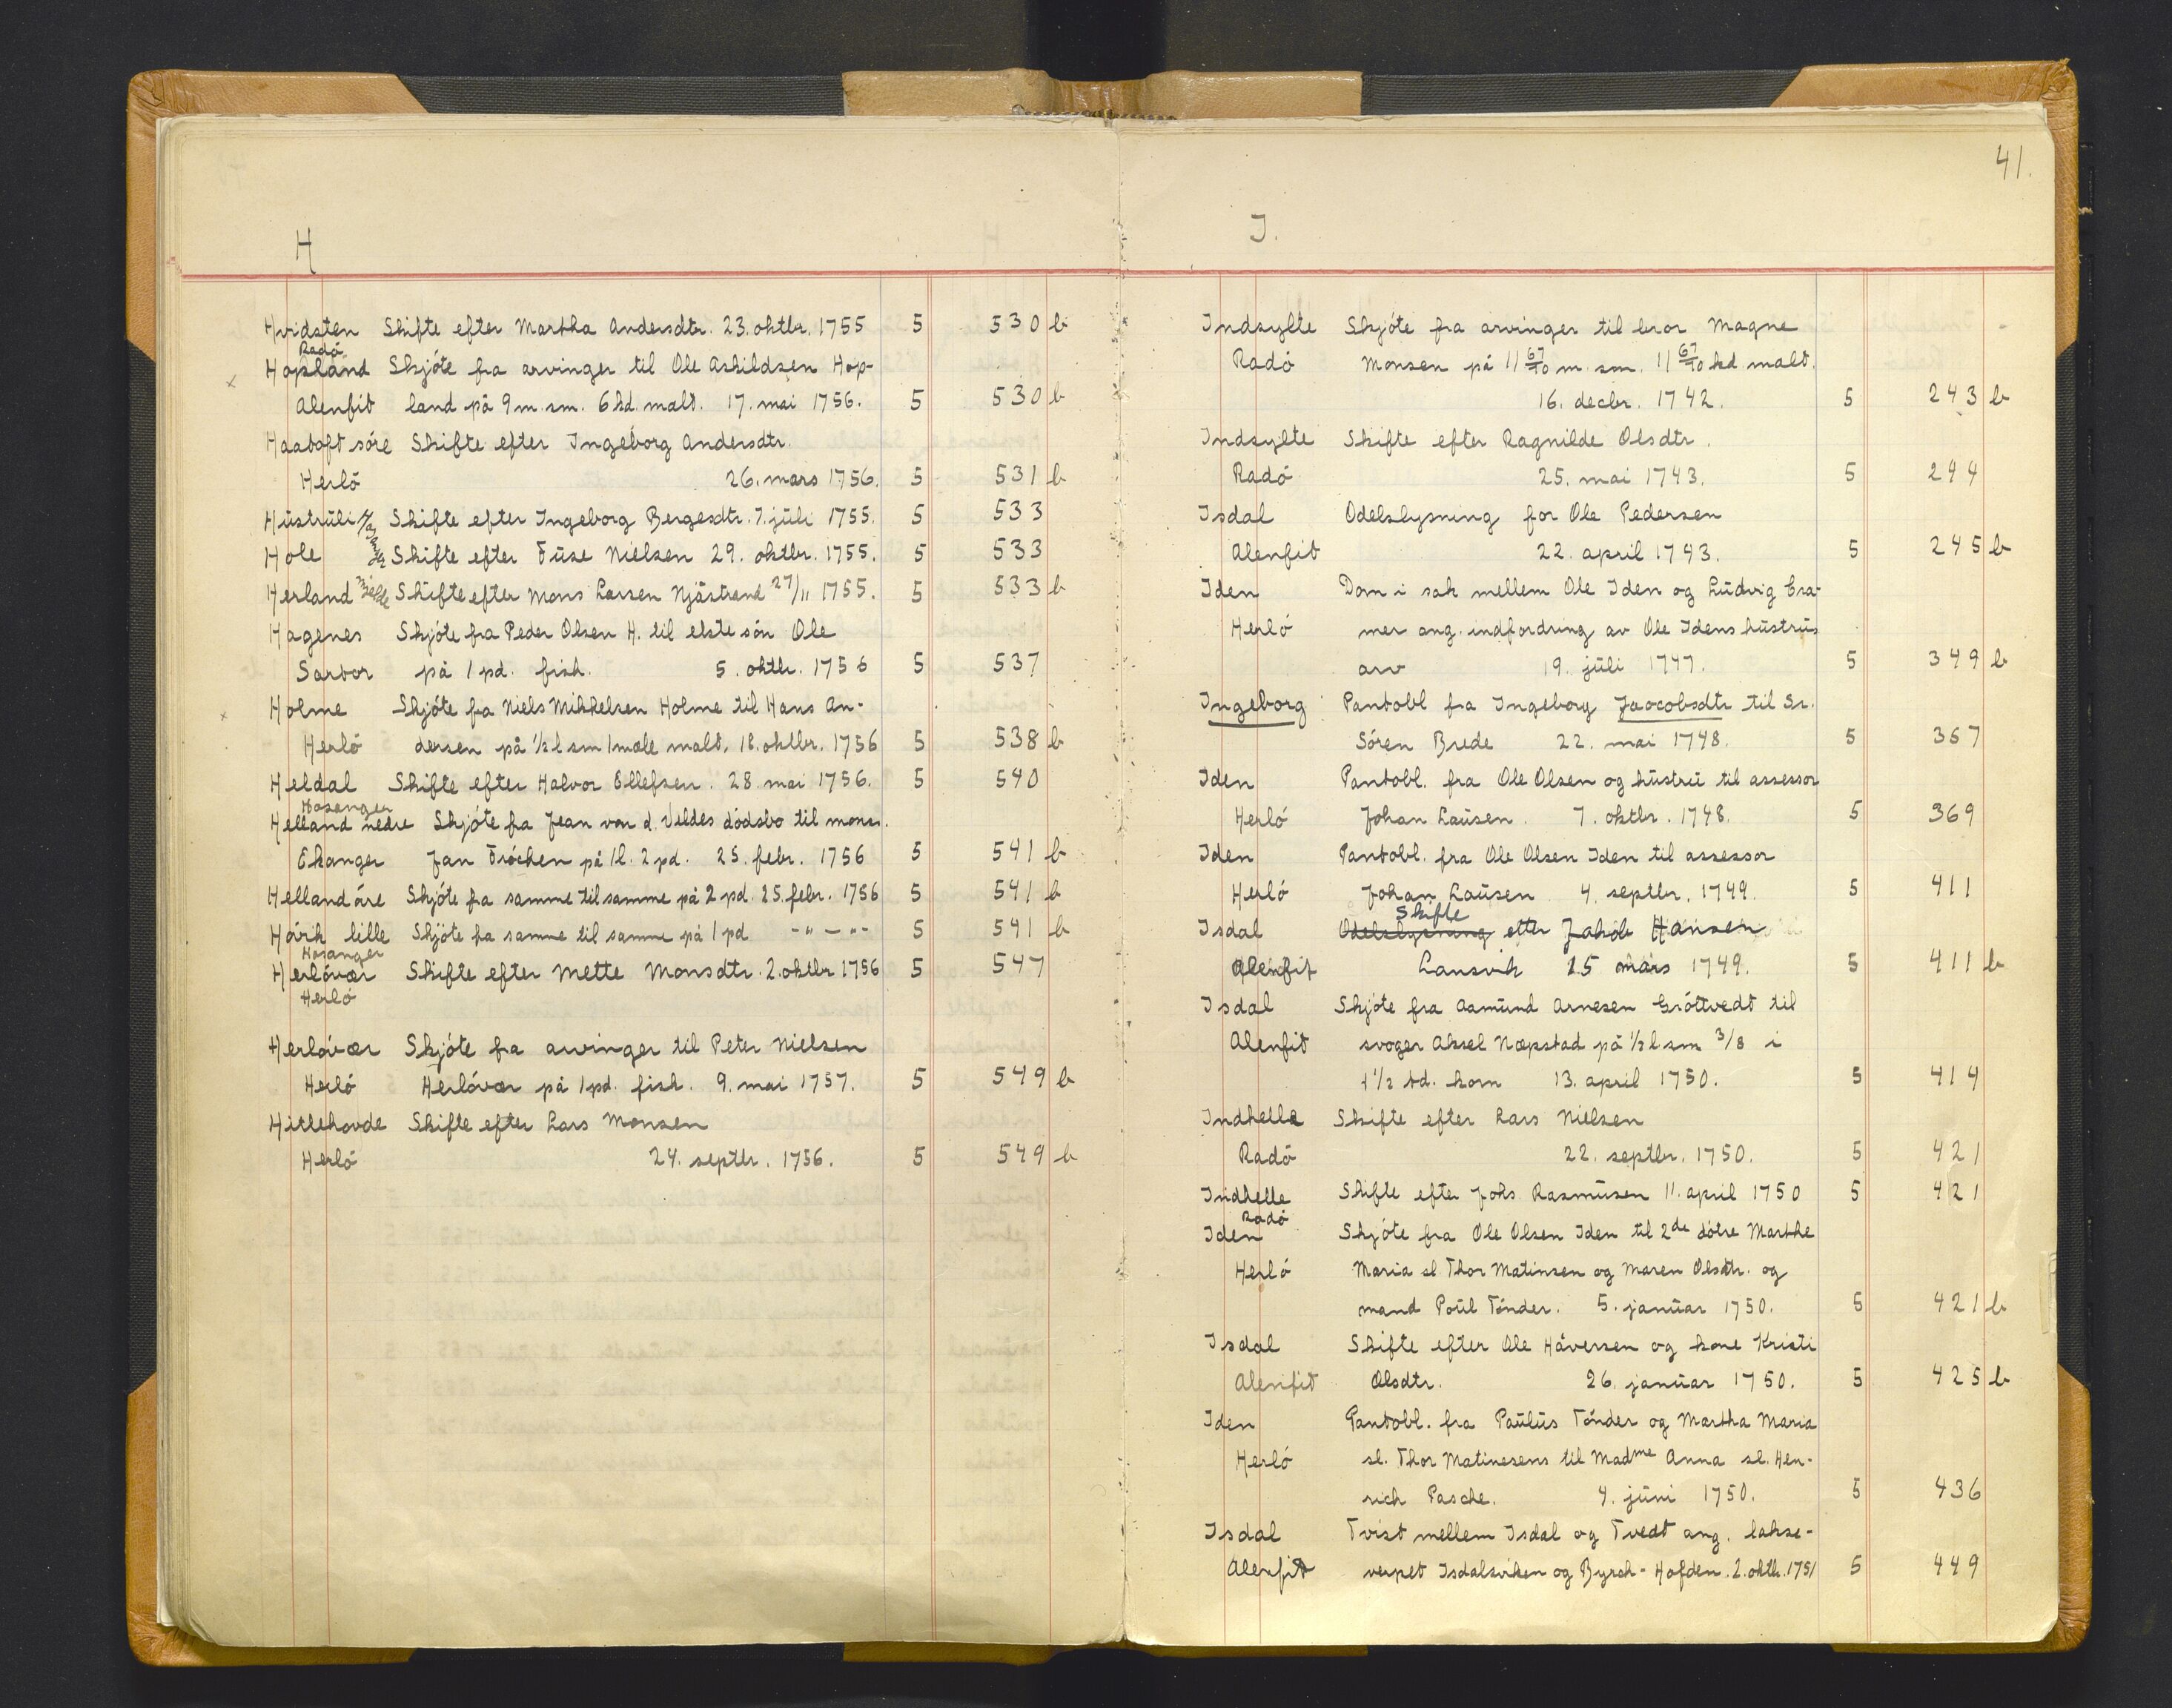 H
Hvidsten Skifte efter Martha Andersdtr. 23. oktbr. 1755 5 530 b
Radö
Hopland Skjöte fra arvinger til Ole Askildsen Hop-
Alenfit land på 9 m. sm. 6 kd. malt. 17. mai 1756. 5 530 b
Haatoft söre Skifte efter Ingeborg Andersdtr.
Herlö 26. mars 1756. 5 531 b
Hustruli Skifte efter Ingeborg Bergesdtr. 7. juli 1755. 5 533
Hole Skifte efter Tuse Nielsen 29. oktbr. 1755. 5 533
Herland Mjelde Skifte efter Mons Larsen Njåstrand 27/11 1755. 5 533 b
Hagenes Skjöte fra Peder Olsen H. til elste sön Ole
Sartor på 1 pd. fisk. 5. oktbr. 1756 5 537
Holme Skjöte fra Niels Mikkelsen Holme til Hans An-
Herlö dersen på 1/2 l sm 1 mæle malt. 18. oktbr. 1756 5 538 b
Heldal Skifte efter Halvor Ellefsen. 28. mai 1756. 5 540
Hosanger
Helland nedre Skjöte fra Jean von d. Veldes dödsbo til mons.
Ekanger Jan Fröchen på 1 l. 2 pd. 25. febr. 1756 5 541 b
Helland öre Skjöte fra samme til samme på 2 pd. 25. febr. 1756 5 541 b
Hövik lille Skjöte fra samme til samme på 1 pd -"-"- 5 541 b
Hosanger
Herlövær Skifte efter Mette Monsdtr. 2. oktbr 1756 5 547
Herlö
Herlövær Skjöte fra arvinger til Peter Nielsen
Herlö Herlövær på 1 pd. fisk. 9. mai 1757. 5 549 b
Hitlehovde Skifte efter Lars Monsen
Herlö 24. septbr. 1756. 5 549 b
41.
I.
Indsylte Skjöte fra arvinger til bror Magne
Radö Monsen på 11 67/70 m sm. 11 67/70 kd malt.
16. decbr. 1742. 5 243 b
Indsylte Skifte efter Ragnilde Olsdtr.
Radö 25. mai 1743. 5 244
Isdal Odelslysning for Ole Pedersen
Alenfit 22. april 1743. 5 245 b
Iden Dom i sak mellem Ole Iden og Ludvig Cra-
Herlö mer ang. indfordring av Ole Idens hustrus
arv 19. juli 1747. 5 349 b
Ingeborg Pantobl fra Ingeborg Jaocobsdtr til Sr.
Sören Brede 22. mai 1748. 5 367
Iden Pantobl. fra Ole Olsen og hustru til assessor
Herlö Johan Lausen. 7. oktbr. 1748. 5 369
Iden Pantobl. fra Ole Olsen Iden til assessor
Herlö Johan Lausen 4. septbr. 1749. 5 411
Skifte
Isdal Odelslysning etter Jakob Hansen
Alenfit Lansvik 15 mars 1749. 5 411 b
Isdal Skjöte fra Aamund Arnesen Gröttvedt til
Alenfit svoger Aksel Næpstad på 1/2 l sm 3/8 i
1 1/2 td. korn 13. april 1750. 5 414
Indhelle Skifte efter Lars Nielsen
Radö 22. septbr. 1750. 5 421
Indhelle Skifte efter Johs Rasmusen 11. april 1750 5 421
Radö
Iden Skjöte fra Ole Olsen Iden til 2de dötre Marthe
Herlö Maria sl Thor Matinsen og Maren Olsdtr. og
mand Poul Tönder. 5. januar 1750. 5 421 b
Isdal Skifte efter Ole Håversen og kone Kristi
Alenfit Olsdtr. 26. januar 1750. 5 425 b
Iden Pantobl. fra Paulus Tönder og Martha Maria
Herlö sl. Thor Matinesens til Madme Anna sl. Hen-
rich Pasche. 4. juni 1750. 5 436
Isdal Tvist mellem Isdal og Tvedt ang. lakse-
Alenfit verpet Isdalsviken og Byrch-Hofden. 2. oktb. 1751 5 449